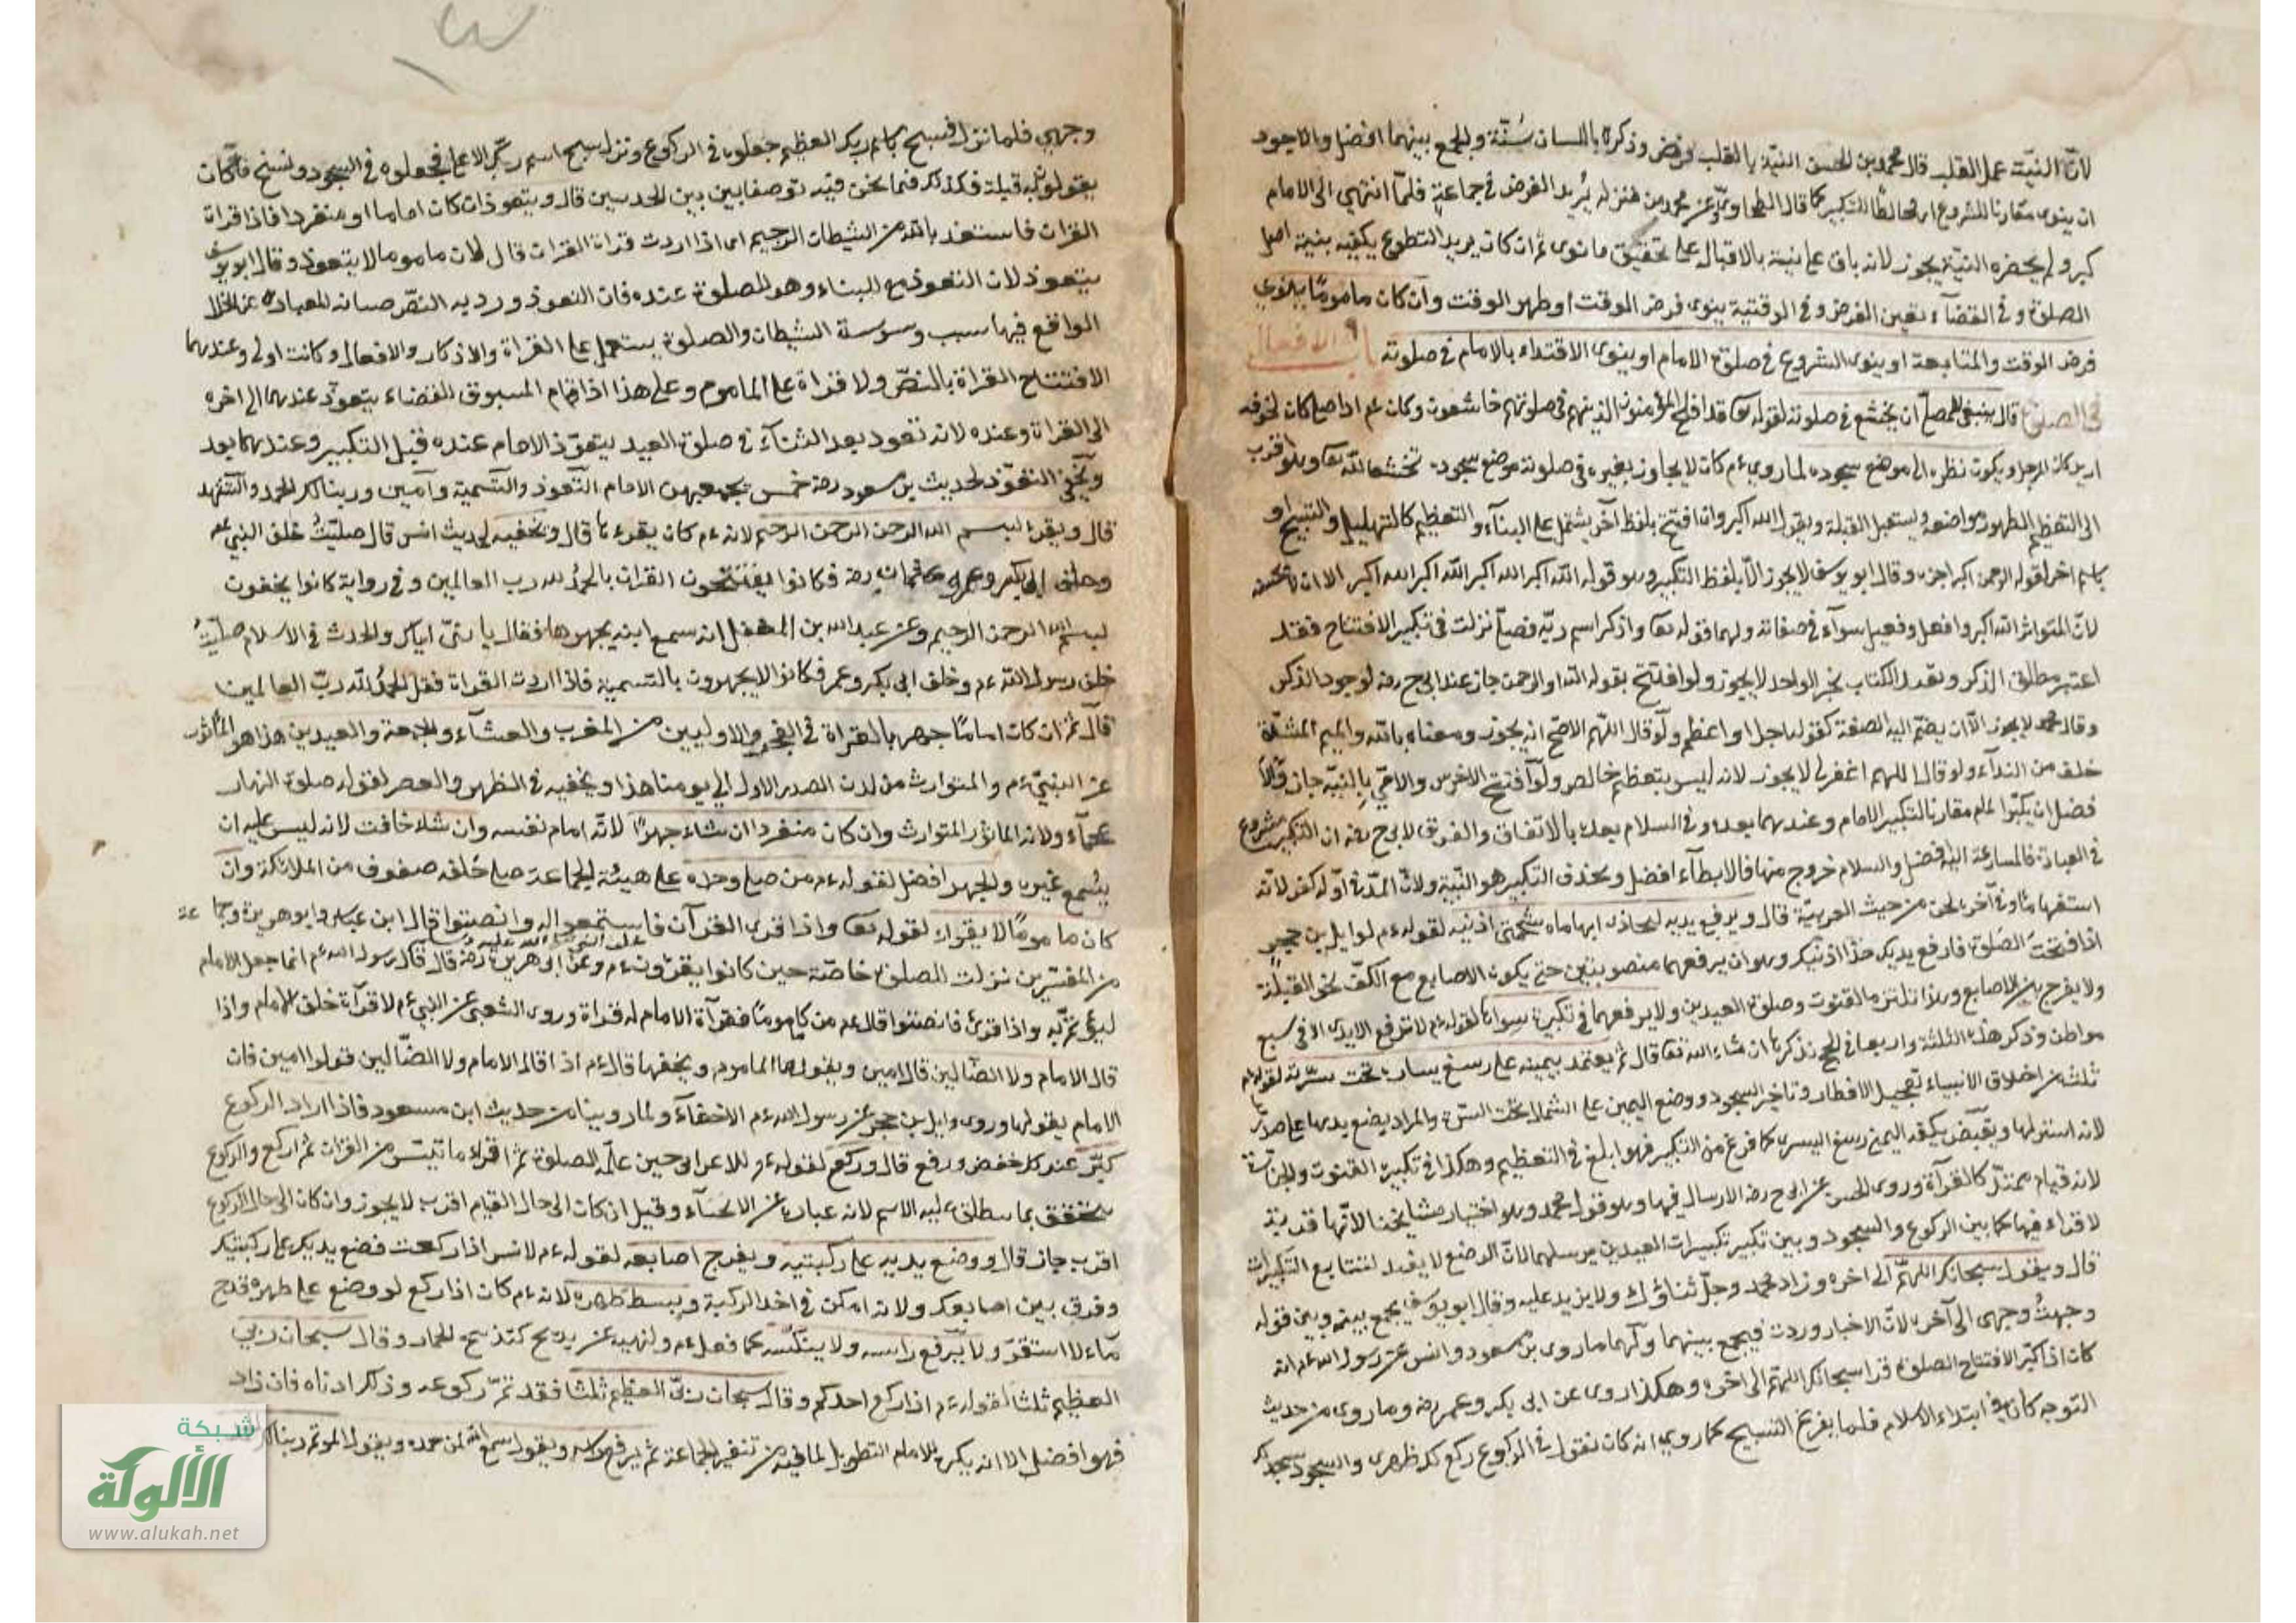 لانّ النيّة عمل القلب قال محمد بن الحسن النيّة بالقلب فرض وذكره باللسان سُنّة والجمع بينهما افضل والاجود
ان ينوى مقارنا للشروع اى مخالطًا للتكبير كما قال الطحاوى وعن محمد من منزله يُريد الفرض في جماعة فلمّا انتهي الى الامام
كبر ولم يحضره النيّة يجوز لانه باق على نيته بالاقبال على تحقيق ما نوى ثم ان كان يريد التطوع يكفيه بنية اصل
الصلوة وفي القضآء يعين الفرض وفي الوقتية ينوى فرض الوقت او ظهر الوقت وان كان مامومًا ينوي
فرض الوقت والمتابعة او ينوى الشروع في صلوة الامام او ينوى الاقتداء بالامام في صلوته باب الافعال
في الصلوة قال ينبغي للمصلّ ان يخشع في صلوته لقوله تعا قد افلح المؤمنون الذين هم في صلوتهم خاشعون وكان عم اذا صلى كان لجوفه
ازيز كازيز المرجل ويكون نظره الى موضع سجوده لما روي ءم كان لا يجاوز بصره في صلوته موضع سجوده تخشعا لله تعا وهو اقرب
الى التعظيم ويستقبل القبلة ويقول الله اكبر وان افتتح بلفظ آخر يشتمل على الثنآء والتعظيم كالتهليل والتسبيح او
باسم اخر لقوله الرحمن اكبر اجزءه وقال ابو يوسف لا يجوز الاّ بلفظ التكبير وهو قوله الله اكبر الله اكبر الله اكبر الا ان لا يحسنه
لانّ المتواتر الله اكبر وافعل وفعيل سوآء في صفاته ولهما قوله تعا واذكر اسم ربّه فصلّى نزلت في تكبير الافتتاح فقد
اعتبر مطلق الذكر وتقييد الكتاب بخبر الواحد لا يجوز ولو افتتح بقوله الله او الرحمن جاز عند ابى ح رضه لوجود الذكر
وقال محمد لا يجوز الاّ ان يضمّ اليه الصفة كقوله اجل او اعظم ولو قال اللّهم الاصحّ انه يجوز ومعناه يا الله والميم المشدّدة
خلف من الندآء ولو قال اللهم اغفر لى لا يجوز لانه ليس بتعظيم خالص ولو افتتح الاخرس والامّي بالنيّة جاز والا
فضل ان يكبّر المأموم مقارنا لتكبير الامام وعندهما بعده وفي السلام بعده بالاتفاق والفرق لابى ح رضه ان التكبير شروع
في العبادة فالمسارعة اليه افضل والسلام خروج منها فالابطآء افضل ويحذف التكبير هو السّنة ولانّ المدّ في اوّله كفر لانّه
استفهام وفي آخره لحن من حيث العربيّة قال ويرفع يديه ليحاذى ابهاماه شحمتى اذنيه لقوله ءم لوايل بن حجر
اذا افتتحت الصّلوة فارفع يديك حذآ اذنيك وهو ان يرفعهما منصوبتين حتى يكون الاصابع مع الكفّ نحو القبلة
ولا يفرج بين الاصابع وهذا في القنوت وصلوة العيدين ولا يرفعهما في تكبيرة سواها لقوله ءم لا ترفع الايدى الا في سبع
مواطن وذكر هذه الثلثة واربعا في الحج نذكرها ان شاء الله تعا قال ثم يعتمد بيمينه على رسغ يساره تحت سرّته لقوله ءم
ثلثة من اخلاق الانبياء تعجيل الافطار وتاخير السحور ووضع اليمين على الشمال تحت السرّة والمراد يضع يديها على صدرها
لانه استر لها ويقبض بكفه اليمنى رسغ اليسرى كما فرغ من التكبير فهو ابلغ في التعظيم وهكذا في تكبيرة القنوت والجنازة
لانه قيام ممتدّ كالقرآة وروى الحسن عن ابى ح رضه الارسال فيها وهو قول محمد وهو اختيار مشايخنا لانّها
لا قراءة فيها كما بين الركوع والسجود وبين تكبير تكبيرات العيدين يرسلهما لانّ الوضع لا يفيد لتتابع التكبيرات
قال ويقول سبحانك اللهمّ الى آخره وزاد محمد وجلّ ثناؤك ولا يزيد عليه وقال ابو يوسف يجمع بينه وبين قوله
وجهتُ وجهى الى آخره لانّ الاخبار وردت فيجمع بينهما ولهما ما روى بن مسعود وانس عن رسول الله ءم انه
كان اذا كبّر لافتتاح الصلوة قرا سبحانك اللهمّ الى اخره وهكذا روى عن ابى بكر وعمر رضه وما روى من حديث
التوجه كان في ابتداء الاسلام فلما التسبيح كما روي انه كان يقول في الركوع ركع لك ظهرى والسجود سجد لك
وجهي فلما نزل فسبح باسم ربك العظيم جعلوه في الركوع ونزل سبح اسم ربّك الاعلى فجعلوه في السجود ونسخ ما كان
يقولونه قبله فكذلك فيما نحن فيه توفيقا بين الحديثين قال ويتعوذ ان كان اماما او منفردا فاذا قراة
القران فاستعذ بالله من الشيطان الرجيم اى اذا اردت قراة القران قال فان ماموما لا يتعوذ وقال ابو يوسف
يتعوذ لان التعوذ مع الثناء وهو للصلوة عنده فان التعوذ ورد به النصّ صيانة للعبادة عن الخلل
الواقع فيها بسبب وسوسة الشيطان والصلوة يستعمل على القراة والاذكار والافعال وكانت اولى وعندهما
الافتتاح القراة بالنصّ ولا قراة على الماموم وعلى هذا اذا قام المسبوق للقضاء يتعوّذ عندهما الى اخره
الى القراة وعنده لانه تعوذ بعد الثنآء في صلوة العيد يتعوّذ الامام عنده قبل التكبير وعندهما بعد
ويخفى التعوّذ لحديث بن مسعود رضه خمس يخفيهن الامام التّعوذ والتّسمية وآمين وربنا لك الحمد والتّشهد
قال ويقرء لبسم الله الرحمن الرحيم لانه ءم كان يقرءها قال ويخفيه لحديث انس قال صليّتُ خلف النبي عم
وخلف ابى بكر وعمر وعثمان رضه فكانوا يفتتحون القران بالحمد لله رب العالمين وفي رواية كانوا يخفون
لبسم الله الرحمن الرحيم وعن عبد الله بن المغفل انه سمع ابنه يجهر بها فقال يا بنىّ اياك والحدث في الاسلام صلّيتُ
خلف رسول الله ءم وخلف ابى بكر وعمر فكانوا لا يجهرون بالتسمية فاذا اردت القراة فقل الحمدُ لله ربّ العالمين
قال ثم ان كان امامًا جهر بالقراة في الفجر والاوليين من المغرب والعشآء والجمعة والعيدين هذا هو المأثور
عن النبيّ ءم والمتوارث من لدن الصدر الاول الى يومنا هذا ويخفيه في الظهر والعصر لقوله صلوة النهار
عجمآء ولانه الماثور المتوارث وان كان منفردا ان شاء جهرًا لانّه امام نفسه وان شاء خافت لانه ليس عليه ان
يُسمع غيره والجهر افضل لقوله ءم من صلى وحده على هيئة الجماعة صلى خلفه صفوف من الملائكة وان
كان مامومًا لا يقراء لقوله تعا واذا قرى القرآن فاستمعوا له وانصتوا قال ابن عباس وابو هريرة وجماعة
من المفسّرين نزلت للصلوة خاصّة حين كانوا يقرؤن خلف النبي صلى الله عليه وعن ابى هريرة رضه قال قال رسول الله ءم انما جعل الامام
ليؤتمّ به واذا قرئ فانصتوا قال ءم من كان مامومًا فقرآة الامام له قراة وروى الشعبى عن النبي ءم لا قرآة خلف الامام واذا
قال الامام ولا الضّالين قال امين ويقولها الماموم ويخفها قال ءم اذا قال الامام ولا الضّالين قولوا امين فان
الامام يقولها وروى وايل بن حجر عن رسول الله ءم الاخفآء ولما روينا من حديث ابن مسعود فاذا اراد الركوع
كبّر عند كل خفض ورفع قال وركع لقوله ءم للاعرابى حين علّمه الصلوة ثم اقراء ما تيسّر من القران ثم اركع والركوع
يتحقق بما ينطلق عليه الاسم لانه عبارة عن الانحنآء وقيل ان كان الى حال القيام اقرب لا يجوز وان كان الى حال الركوع
اقرب جاز قال ووضع يديه على ركبتيه ويفرج اصابعه لقوله ءم لانس اذا ركعت فضع يديك على ركبتيك
وفرق بين اصابعك ولانه امكن في اخذ الركبة ويبسط ظهره لانه ءم كان اذا ركع لو وضع على ظهره قدح
مآء لاستقرّ ولا يرفع راسه ولا ينكّسه كما فعله ءم ولنهيه عن يدبح كتدبيح الحمار وقال سبحان ربي
العظيم ثلثا لقوله ءم اذا ركع احدكم وقال سبحان ربّى العظيم ثلثا فقد تمّ ركوعه وذلك ادناه فان زاد
فهو افضل الا انه يكره للامام التطويل لما فيه من تنفير الجماعة ثم يرفع راسه ويقول سمع الله لمن حمده ويقول الموتم ربنا لك
شبكة
الألوكة
www.alukah.net